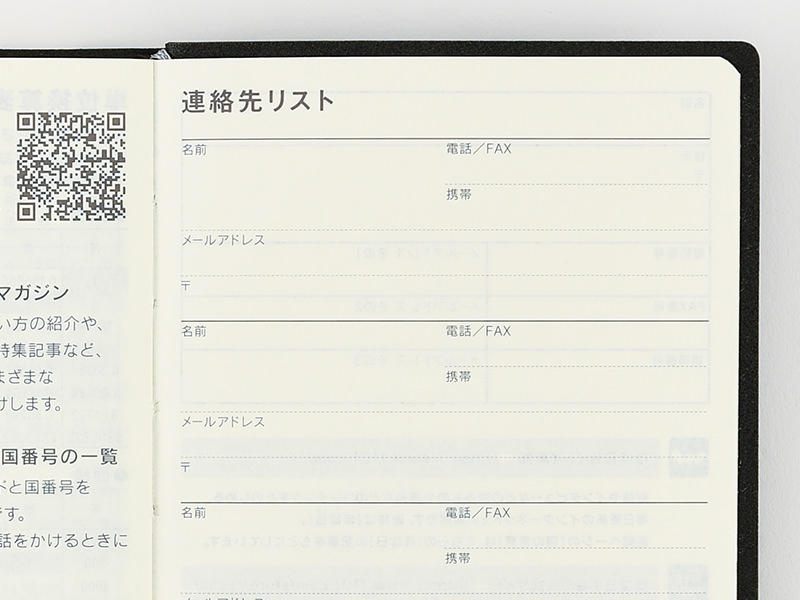 マガジン
い方の紹介や、
特集記事など、
まざまな
けします。
国番号の一覧
ドと国番号を
です。
話をかけるときに
連絡先リスト
名前
電話／FAX
携帯
メールアドレス
〒
名前
電話／FAX
携帯
メールアドレス
〒
名前
電話／FAX
携帯
メールアドレス